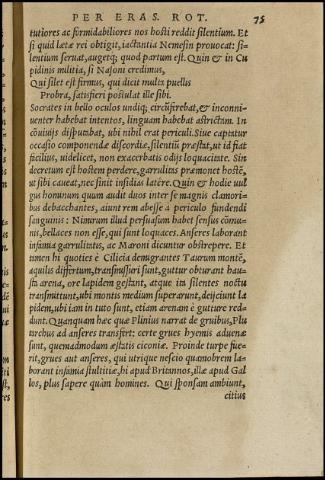 PER ERAS. ROT. 75
tutiores ac formidabiliores nos hosti reddit silentium. Et
si quid lætæ rei obtigit, iactantia Nemesin prouocat: si-
lentium seruat, augetq; quod partum est. Quin & in Cu
pidinis militia, si Nasoni credimus,
Qui silet est firmus, qui dicit multa puellis
Probra, satisfieri postulat ille sibi.
Socrates in bello oculos undiq; circūfirebat, & inconni-
uenter habebat intentos, linguam habebat astrictam. In
cōuiuijs disputabat, ubi nihil erat periculi. Siue captatur
occasio componendæ discordiæ, silentiū præstat, ut id fiat
facilius, uidelicet, non exacerbatis odijs loquacitate. Sin
decretum est hostem perdere, garrulitas præmonet hostē,
ut sibi caueat, nec sinit insidias latere. Quin & hodie uul
gus hominum quum audit duos inter se magnis clamori-
bus debacchantes, aiunt rem abesse à periculo fundendi
sanguinis: Nimirum illud persuasum habet sensus cōmu-
nis, bellaces non esse, qui sunt loquaces. Anseres laborant
infamia garrulitatis, ac Maroni dicuntur obstrepere. Et
tamen hi quoties è Cilicia demigrantes Taurum montē,
aquilis differtum, transmissuri sunt, guttur obturant hau-
sta arena, ore lapidem gestant, atque ita silentes noctu
transmittunt, ubi montis medium superarunt, deijciunt la
pidem, ubi iam in tuto sunt, etiam arenam è guture red-
dunt. Quanquam hæc quæ Plinius narrat de gruibus, Plu
tarchus ad anseres transfert: certe grues hyemis aduenæ
sunt, quemadmodum æstatis ciconiæ. Proinde turpe fue-
rit, grues aut anseres, qui utrique nescio quamobrem la-
borant infamia stultitiæ, hi apud Britannos, illæ apud Gal
los, plus sapere quàm homines. Qui sponsam ambiunt,
citius